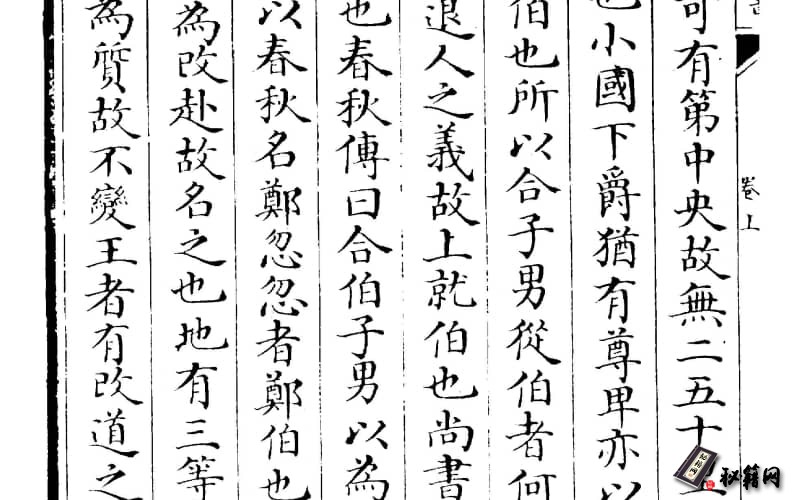 有第中央故無二五十
小國下爵猶有尊卑亦以
伯也所以合子男從伯者何
退人之義故上就伯也尚書
也春秋傳曰合伯子男以為
以春秋名鄭忽忽者鄭伯也
為改赴故名之也地有三等
為質故不變王者有改道之
卷上
秘籍网